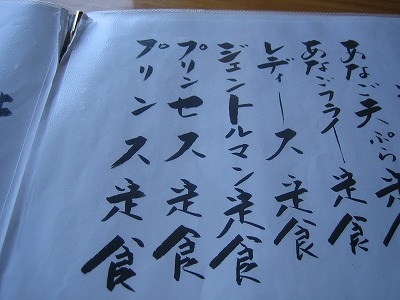 あなご天ぷら定
あなごフライ定食
レディース定食
ジェントルマン定食
プリンセス定食
プリンス定食